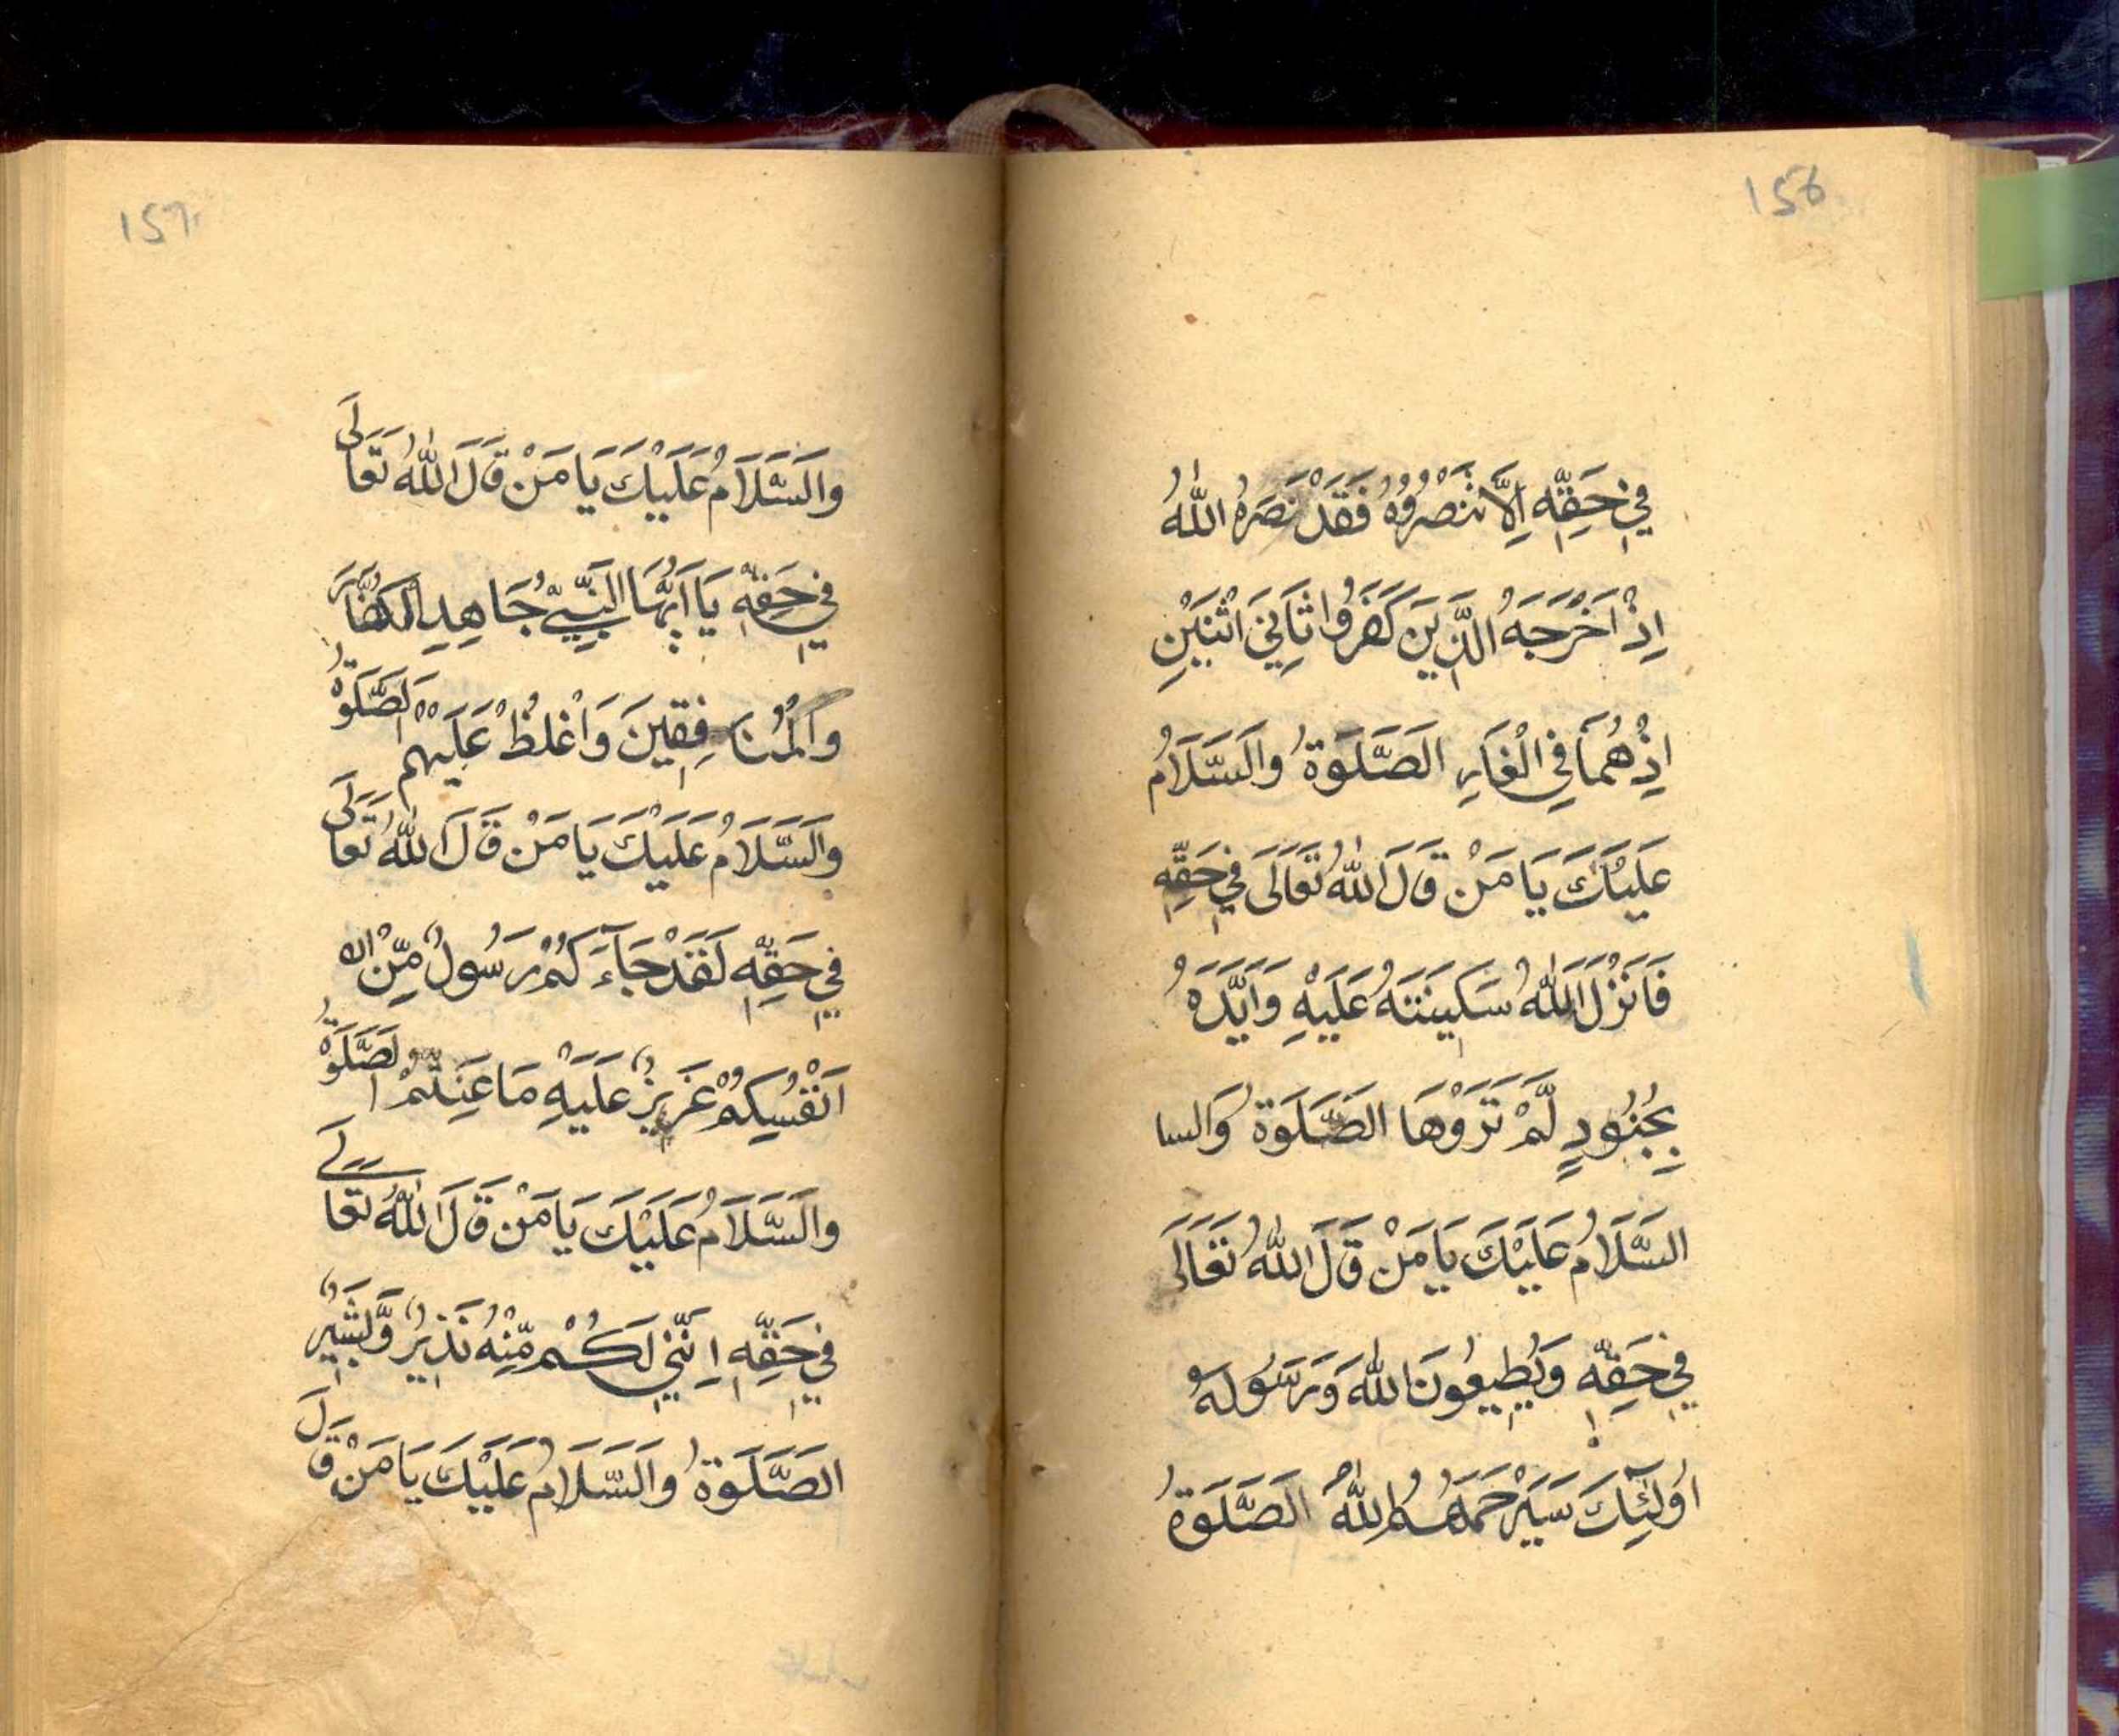 158
فِيْ حَقِّهٖ اِلَّا تَنْصُرُوْهُ فَقَدْ نَصَرَهُ اللّٰهُ
اِذْ اَخْرَجَهُ الَّذِيْنَ كَفَرُوْا ثَانِيَ اثْنَيْنِ
اِذْ هُمَا فِي الْغَارِ الصَّلَوٰةُ وَالسَّلَامُ
عَلَيْكَ يَا مَنْ قَالَ اللّٰهُ تَعَالَى فِيْ حَقِّهٖ
فَاَنْزَلَ اللّٰهُ سَكِيْنَتَهُ عَلَيْهِ وَاَيَّدَهُ
بِجُنُوْدٍ لَّمْ تَرَوْهَا الصَّلَوٰةُ وَالسا
السَّلَامُ عَلَيْكَ يَا مَنْ قَالَ اللّٰهُ تَعَالَى
فِيْ حَقِّهٖ وَيُطِيْعُوْنَ اللّٰهَ وَرَسُوْلَهٗ
اُولٰٓئِكَ سَيَرْحَمُهُمُ اللّٰهُ الصَّلَوٰةُ
159
وَالسَّلَامُ عَلَيْكَ يَا مَنْ قَالَ اللّٰهُ تَعَالَى
فِيْ حَقِّهٖ يَا اَيُّهَا النَّبِيُّ جَاهِدِ الْكُفَّارَ
وَالْمُنَافِقِيْنَ وَاغْلُظْ عَلَيْهِمْ الصَّلَوٰةُ
وَالسَّلَامُ عَلَيْكَ يَا مَنْ قَالَ اللّٰهُ تَعَالَى
فِيْ حَقِّهٖ لَقَدْ جَآءَكُمْ رَسُوْلٌ مِّنْ
اَنْفُسِكُمْ عَزِيْزٌ عَلَيْهِ مَا عَنِتُّمْ الصَّلَوٰةُ
وَالسَّلَامُ عَلَيْكَ يَا مَنْ قَالَ اللّٰهُ تَعَالَى
فِيْ حَقِّهٖ اِنَّنِيْ لَكُمْ مِّنْهُ نَذِيْرٌ وَّبَشِيْرٌ
الصَّلَوٰةُ وَالسَّلَامُ عَلَيْكَ يَا مَنْ قَالَ